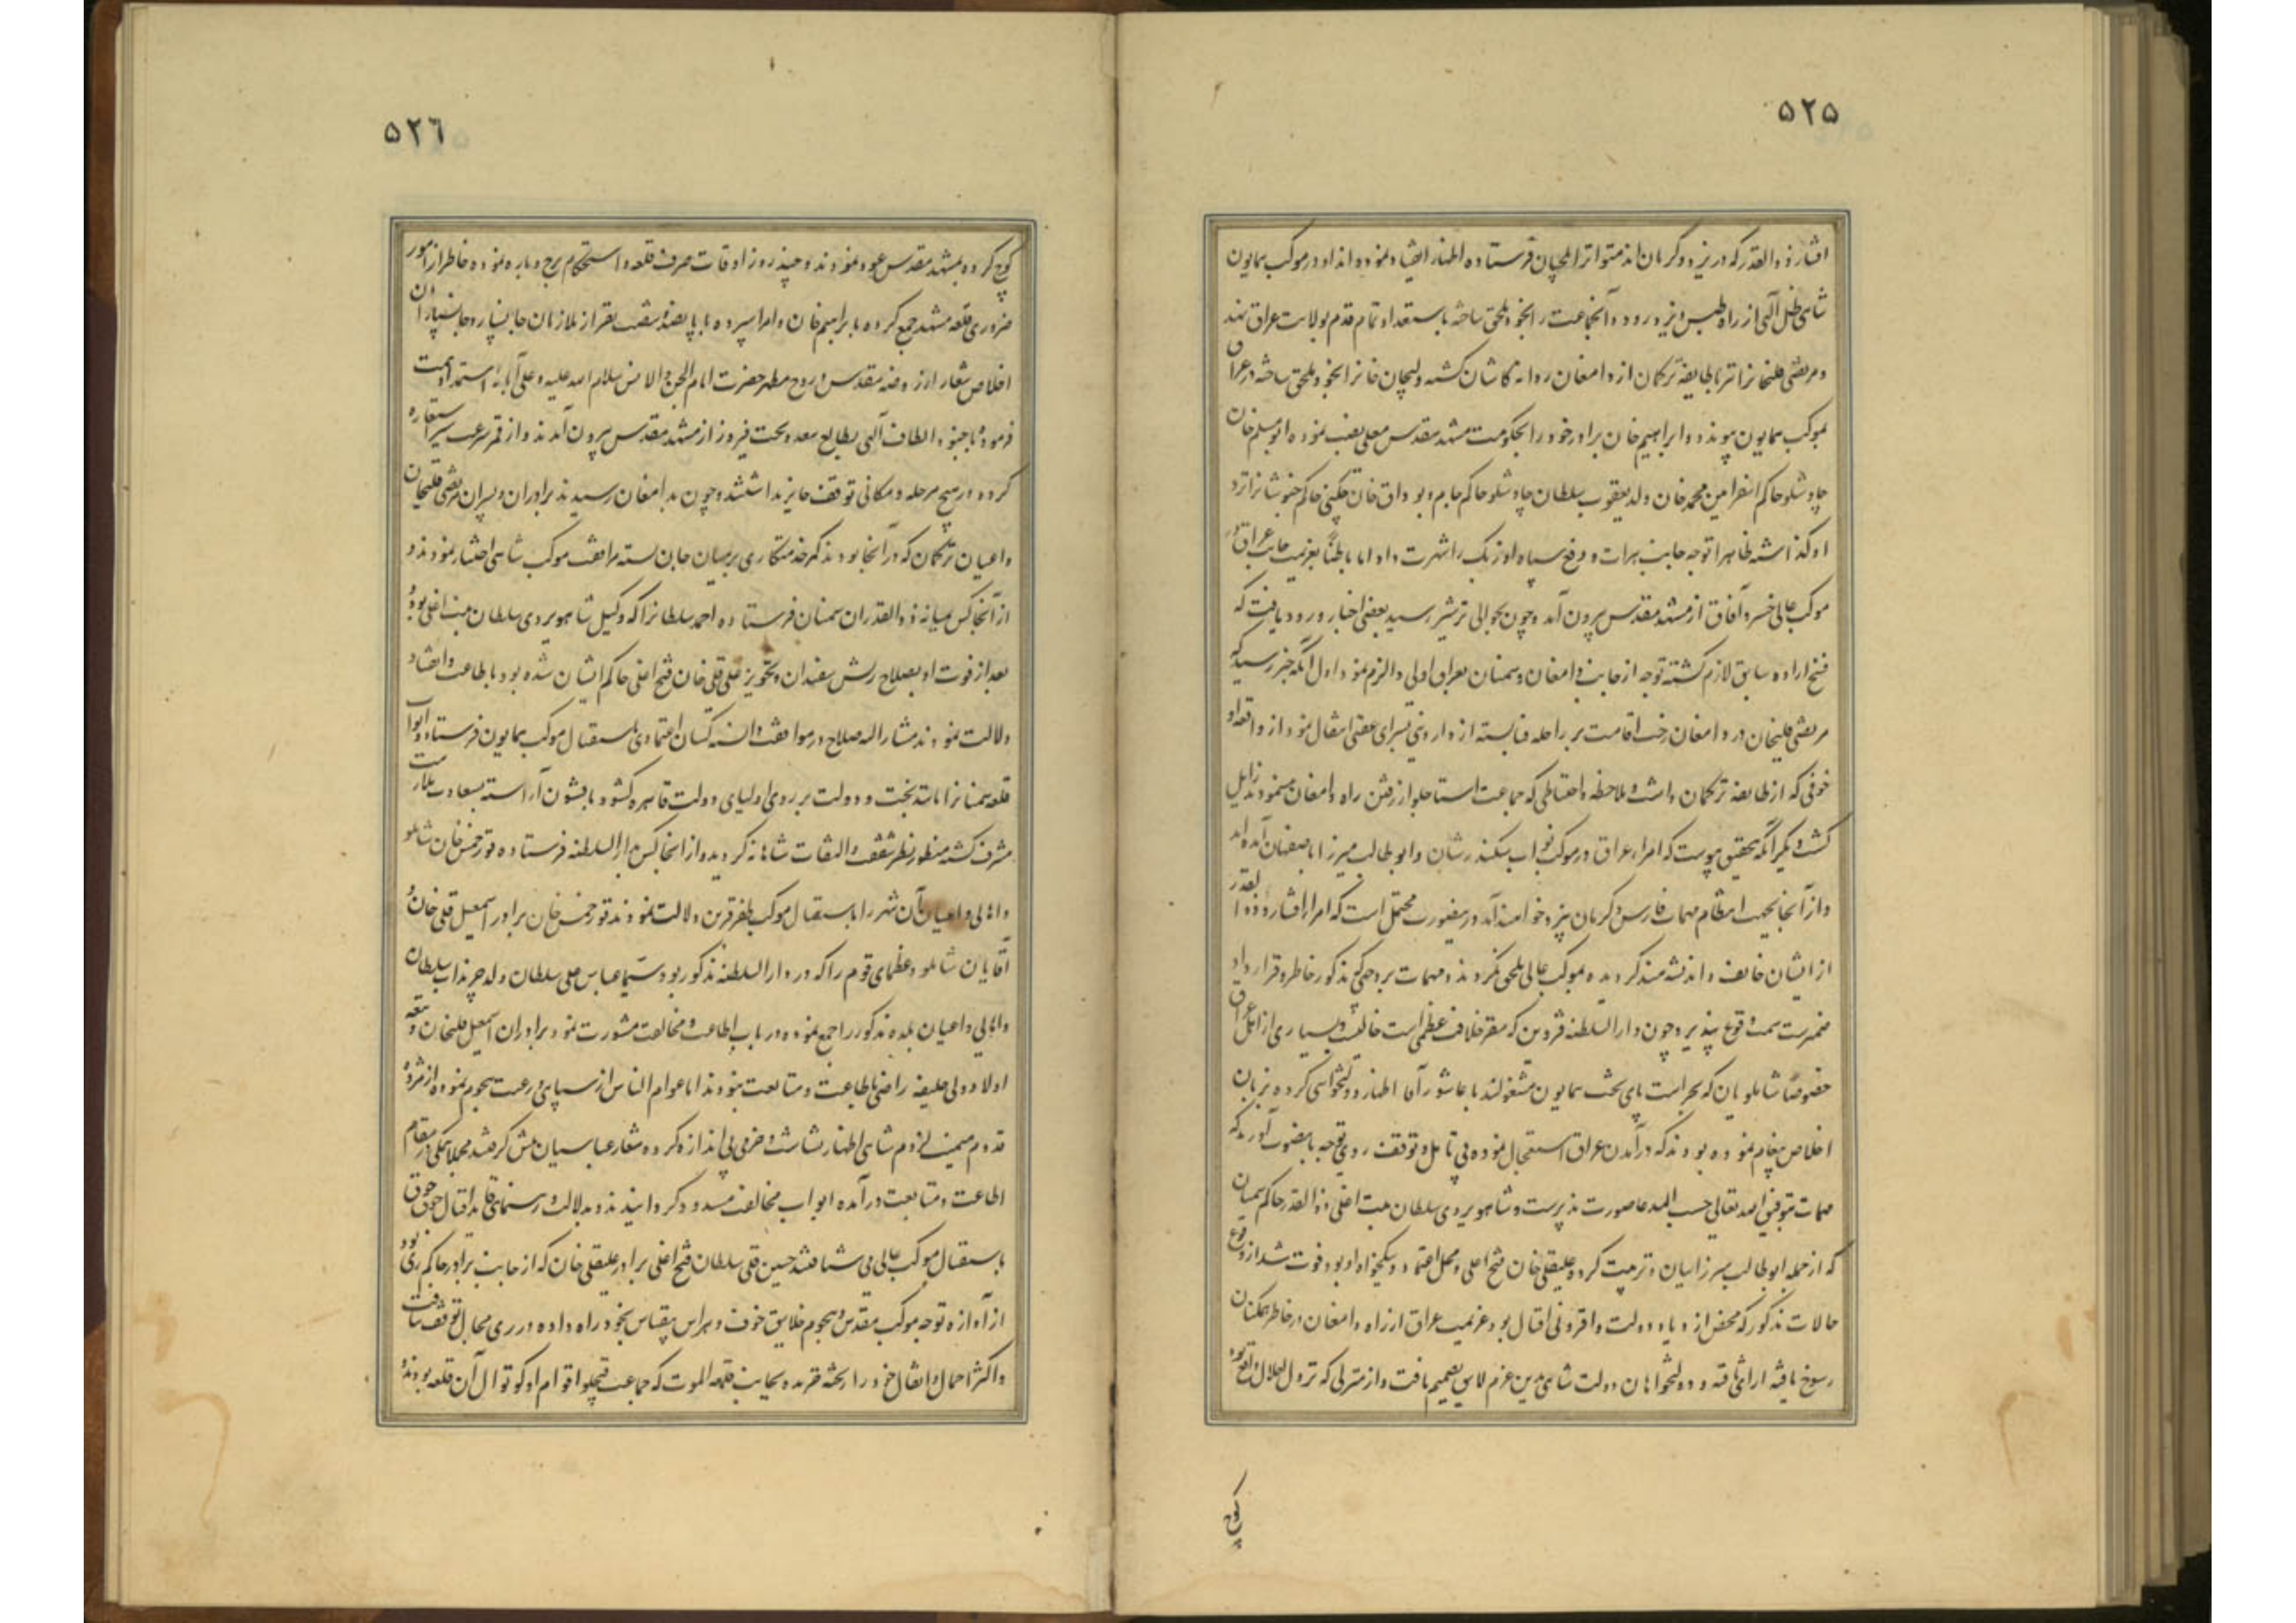 ۵۲۵
افشار و ذوالقدر که در یزد و کرمان‌اند متواتر ایلچیان فرستاده اظهار انقیاد نموده‌اند او در موکب همایون
شاهی ظل آلهی از راه طبس و یزد رود و آنجماعت را بخود ملحق ساخته باستعداد تمام قدم بولایت عراق نهند
و مرتضی قلیخانرا نیز با طایفه ترکمان از دامغان روانه کاشان گشته ولیجان خانرا بخود ملحق ساخته در عراق
بموکب همایون پیوندد و ابراهیم خان برادر خود را بحکومت مشهد مقدس معلی نصب نموده ابومسلم خان
چاوشلو حاکم اسفراین محمد خان ولد یعقوب سلطان چاوشلو حاکم جام و بوداق خان چکنی حاکم خبوشانرا نزد
او گذاشته ظاهرا توجه جانب هرات و دفع سپاه اوزبک را شهرت داد اما باطناً بعزیمت جانب عراق
موکب عالی خسرو آفاق از مشهد مقدس بیرون آمد و چون بحوالی ترشیز رسید بعضی اخبار ورود یافت که
فسخ اراده سابق لازم گشته توجه از جانب دامغان و سمنان بعراق اولی و الزم نمود اول آنکه خبر رسید که
مرتضی قلیخان در دامغان رخت اقامت بر راحله فنا بسته از دار دنیی بسرای عقبی انتقال نمود از واقعه او
خوفی که از طایفه ترکمان داشت و ملاحظه و احتیاطی که جماعت استاجلو از رفتن راه دامغان مینمودند زایل
گشت دیگر آنکه بتحقیق پیوست که امراء عراق در موکب نواب سکندر شان و ابو طالب میرزا باصفهان آمده‌اند
و از آنجا بجهت انتظام مهمات فارس و کرمان بیزد خواهند آمد درینصورت محتمل است که امراء افشار و ذوالقدر
از ایشان خایف و اندیشه‌مند گردیده بموکب عالی ملحق نگردند و مهمات بر وجهی که مذکور خاطر و قرارداد
ضمیرست سمت وقوع نپذیرد و چون دارالسلطنه قزوین که مقر خلافت عظمی است خالیست و بسیاری از اهل عراق
خصوصاً شاملویان که بحراست پای تخت همایون مشغولند با عاشور آقا اظهار دولتخواهی کرده بزبان
اخلاص پیغام نموده بودند که در آمدن عراق استعجال نموده بی تامل و توقف روی توجه بآنصوب آورند که
مهمات بتوفیق الله تعالی حسب المدعا صورت پذیرست و شاهویردی سلطان میت اغلی ذوالقدر حاکم سمنان
که از جمله ابو طالب میرزاییان و تربیت کرده علیقلی خان فتح اغلی و محل اعتماد و نیکخواه او بود فوت شد از وقوع
حالات مذکور که محض ازدیاد دولت و افزونی اقبال بود عزیمت عراق از راه دامغان در خاطر همگنان
رسوخ یافته ارای ثاقبه و دولتخواهان دولت شاهی بدین عزم لباس تصمیم یافت و از منزلی که نزول اجلال واقع بود
کوچ
۵۲٦
کوچ کرده بمشهد مقدس عود نمودند و چند روز اوقات صرف قلعه و استحکام برج و باره نموده خاطر از امور
ضروری قلعه مشهد جمع کرده بابراهیم خان و امرا سپرده با پانصد ششصد نفر از ملازمان جانسپار و جانسپاران
اخلاص شعار از روضه مقدس و روح مطهر حضرت امام الجن و الانس سلام الله علیه و علی آبائه استمداد همت
فرموده با جنود الطاف آلهی بطالع سعد و بخت فیروز از مشهد مقدس بیرون آمدند و از قمر سرعت سیر استعاره
کرده در هیچ مرحله و مکانی توقف جایز نداشتند و چون بدامغان رسیدند برادران و پسران مرتضی قلیخان
و اعیان ترکمان که در آنجا بودند کمر خدمتکاری بر میان جان بسته مرافقت موکب شاهی اختیار نمودند و
از آنجا کس میانه ذوالقدران سمنان فرستاده احمد سلطانرا که وکیل شاهویردی سلطان میت اغلی بود و
بعد از فوت او بصلاح ریش سفیدان و تجویز علی قلی خان فتح اغلی حاکم ایشان شده بود باطاعت و انقیاد
دلالت نمودند مشار الیه صلاح در موافقت دانسته کسان اعتمادی باستقبال موکب همایون فرستاده ابواب
قلعه سمنانرا مانند بخت و دولت بر روی اولیای دولت قاهره گشود با قشون آراسته بسعادت ملازمت
مشرف گشته منظور نظر شفقت و التفات شاهانه گردید و از انجا کس بدار السلطنه فرستاده تورخمش خان شاملو
و اهالی و اعیان آن شهر را باستقبال موکب ظفر قرین دلالت نمودند تورخمش خان برادر اسمعیل قلی خان و
آقایان شاملو و عظمای قوم را که در دارالسلطنه مذکور بود سیما عباس علی سلطان ولد چرنداب سلطان
و اهالی و اعیان بلده مذکور را جمع نموده در باب اطاعت و مخالفت مشورت نمود برادران اسمعیل قلیخان و تتمه
اولاد ولی خلیفه راضی باطاعت و متابعت نبودند اما عوام الناس از سپاهی و رعیت هجوم نموده از مژده
قدوم میمنت لزوم شاهی اظهار بشاشت و خرمی بی اندازه کرده شعار عباسیان پیش گرفتند مجملا همگی در مقام
اطاعت و متابعت درآمده ابواب مخالفت مسدود گردانیدند و بدلالت و رهنمائی قاید اقبال جوق جوق
باستقبال موکب عالی می شتافتند حسین قلی سلطان فتح اغلی برادر علیقلی خان که از جانب برادر حاکم ری بود
از آوازه توجه موکب مقدس و هجوم خلایق خوف و هراس بیقیاس بخود راه داده در ری مجال توقف نیافت
و اکثر احمال و اثقال خود را ریخته فریده بجانب قلعه الموت که جماعت قبچلو اقوام او کوتوال آن قلعه بودند